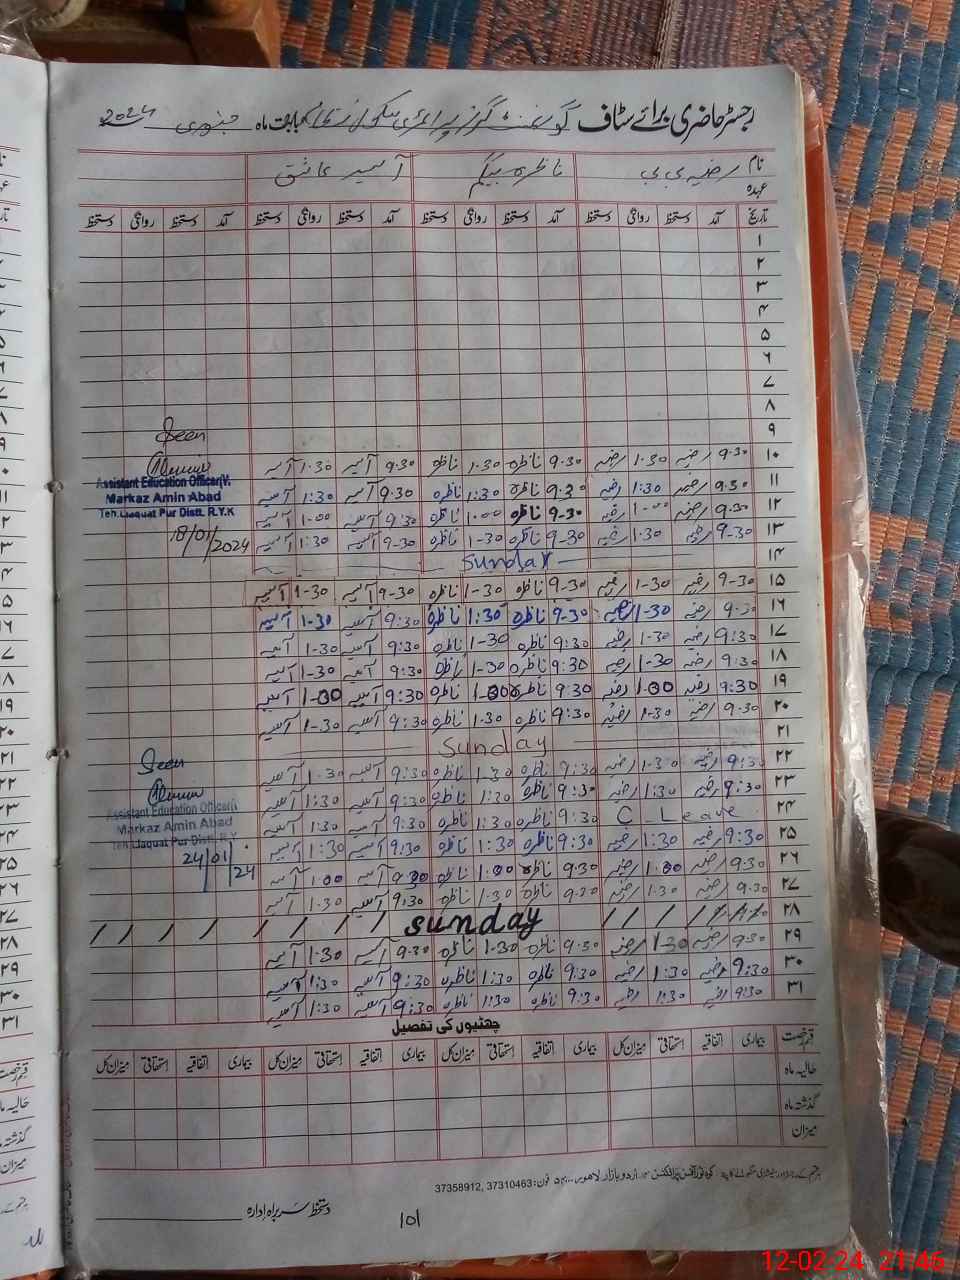 رجسٹر حاضری برائے سٹاف گورنمنٹ گرلز پرائمری سکول بابت ماہ جنوری 2024
نام رضیہ بی بی ناظرہ بیگم آسیہ عاشق
عہدہ
تاریخ آمد دستخط روانگی دستخط آمد دستخط روانگی دستخط آمد دستخط روانگی دستخط آمد دستخط روانگی دستخط
۱
۲
۳
۴
۵
۶
۷
۸
۹
Seen
۱۰ 9.30 رضیہ 1.30 رضیہ 9.30 ناظرہ 1.30 ناظرہ 9.30 آسیہ 1.30 آسیہ
Assistant Education Officer
۱۱ 9.30 رضیہ 1:30 رضیہ 9.30 ناظرہ 1:30 ناظرہ 9.30 آسیہ 1:30 آسیہ
Markaz Amin Abad
۱۲ 9.30 رضیہ 1.00 رضیہ 9-30 ناظرہ 1.00 ناظرہ 9:30 آسیہ 1.00 آسیہ
Teh. Liaquat Pur Distt. R.Y.K
۱۳ 9-30 رضیہ 1.30 رضیہ 9-30 ناظرہ 1-30 ناظرہ 9-30 آسیہ 1:30 آسیہ
18/01/2024
۱۴ Sunday
۱۵ 9-30 رضیہ 1-30 رضیہ 9-30 ناظرہ 1-30 ناظرہ 9-30 آسیہ 1-30 آسیہ
۱۶ 9.30 رضیہ 1-30 رضیہ 9-30 ناظرہ 1:30 ناظرہ 9:30 آسیہ 1-30 آسیہ
۱۷ 9:30 رضیہ 1-30 رضیہ 9:30 ناظرہ 1-30 ناظرہ 9:30 آسیہ 1-30 آسیہ
۱۸ 9:30 رضیہ 1-30 رضیہ 9:30 ناظرہ 1-30 ناظرہ 9:30 آسیہ 1-30 آسیہ
۱۹ 9:30 رضیہ 1-00 رضیہ 9:30 ناظرہ 1-00 ناظرہ 9:30 آسیہ 1-00 آسیہ
۲۰ 9.30 رضیہ 1-30 رضیہ 9:30 ناظرہ 1.30 ناظرہ 9:30 آسیہ 1-30 آسیہ
۲۱ Sunday
Seen
۲۲ 9:30 رضیہ 1-30 رضیہ 9:30 ناظرہ 1:30 ناظرہ 9:30 آسیہ 1-30 آسیہ
۲۳ 9:30 رضیہ 1:30 رضیہ 9:30 ناظرہ 1:30 ناظرہ 9:30 آسیہ 1:30 آسیہ
Assistant Education Officer
۲۴ C-Leave 9:30 ناظرہ 1:30 ناظرہ 9:30 آسیہ 1:30 آسیہ
Markaz Amin Abad
۲۵ 9:30 رضیہ 1:30 رضیہ 9:30 ناظرہ 1:30 ناظرہ 9:30 آسیہ 1:30 آسیہ
Teh. Liaquat Pur Distt. R.Y
24/01/24
۲۶ 9:30 رضیہ 1:00 رضیہ 9.30 ناظرہ 1:00 ناظرہ 9:30 آسیہ 1:00 آسیہ
۲۷ 9.30 رضیہ 1:30 رضیہ 9.30 ناظرہ 1.30 ناظرہ 9:30 آسیہ 1.30 آسیہ
۲۸ sunday
۲۹ 9.30 رضیہ 1.30 رضیہ 9.30 ناظرہ 1-30 ناظرہ 9.30 آسیہ 1.30 آسیہ
۳۰ 9:30 رضیہ 1:30 رضیہ 9:30 ناظرہ 1:30 ناظرہ 9:30 آسیہ 1:30 آسیہ
۳۱ 9:30 رضیہ 1:30 رضیہ 9:30 ناظرہ 1:30 ناظرہ 9:30 آسیہ 1:30 آسیہ
چھٹیوں کی تفصیل
قسم رخصت بیماری اتفاقیہ استحقاقی میزان کل بیماری اتفاقیہ استحقاقی میزان کل بیماری اتفاقیہ استحقاقی میزان کل بیماری اتفاقیہ استحقاقی میزان کل
حالیہ ماہ
گذشتہ ماہ
میزان
اردو بازار لاہور فون: 37310463, 37358912
دستخط سربراہ ادارہ
101
12-02-24 21:46